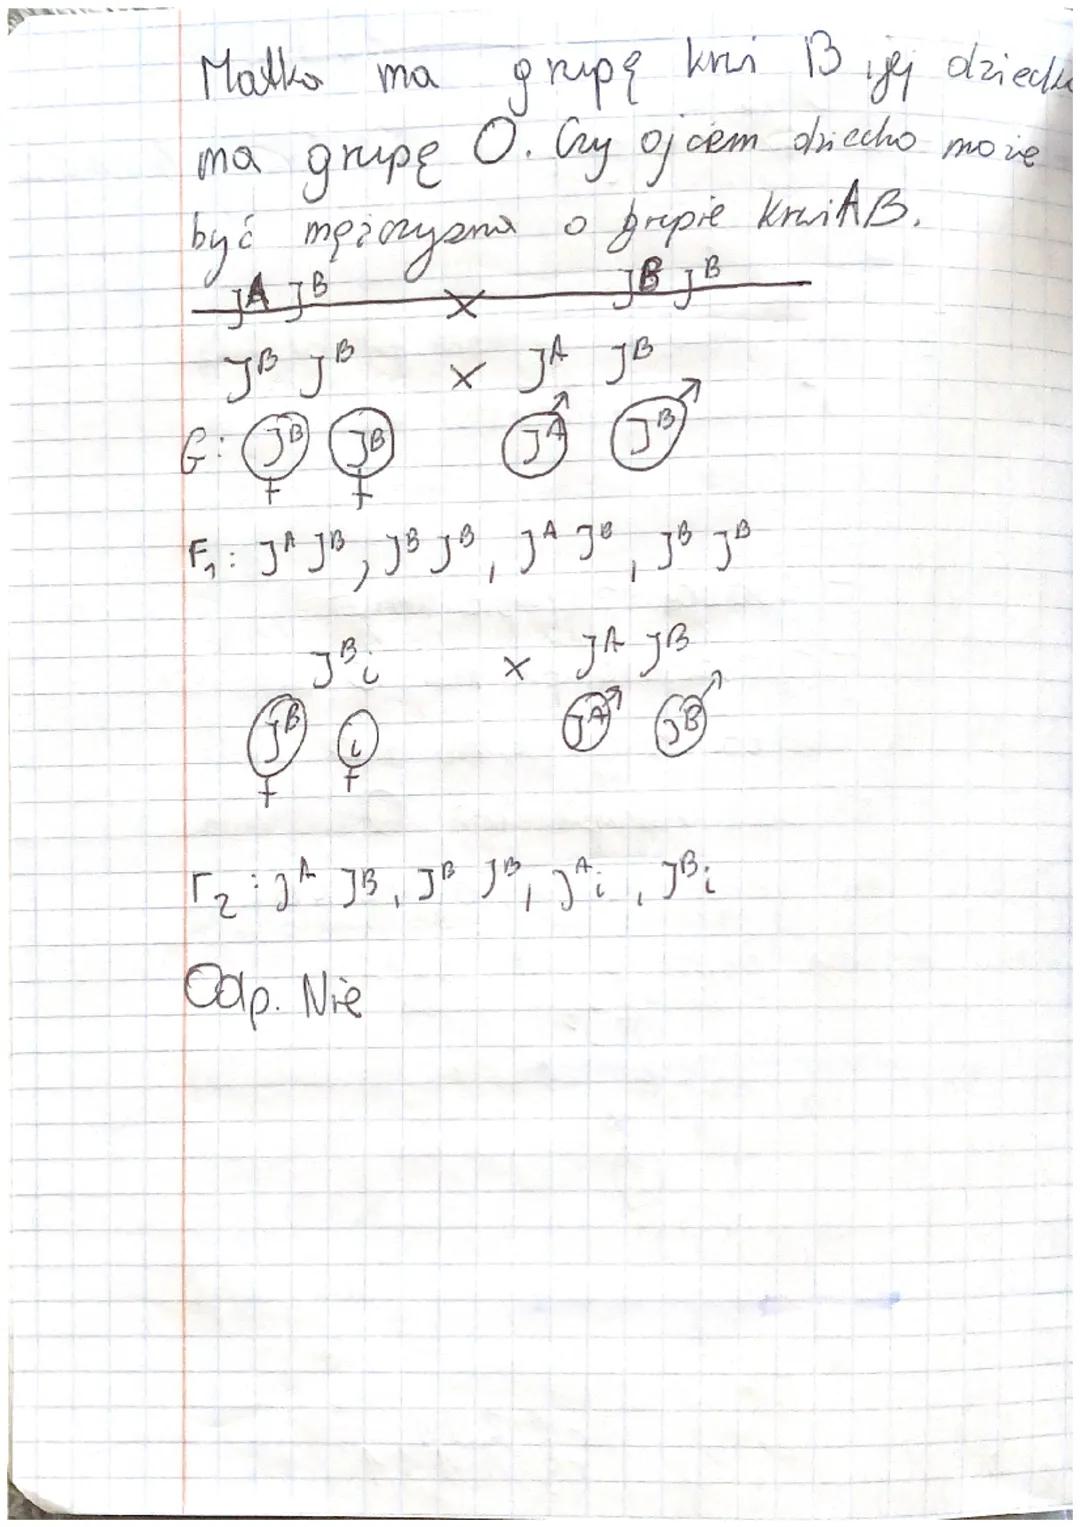 Matka ma grupę krwi B i jej dziecko
ma grupę O. Czy ojcem dziecka może
być mężczyzna o grupie krwi AB.
J^A J^B x J^B J^B
J^B J^B x J^A J^B
G: J^B J^B J^A J^B
F1: J^A J^B, J^B J^B, J^A J^B, J^B J^B
J^B i x J^A J^B
J^B i J^A J^B
F2: J^A J^B, J^B J^B, J^A i, J^B i
Odp. Nie